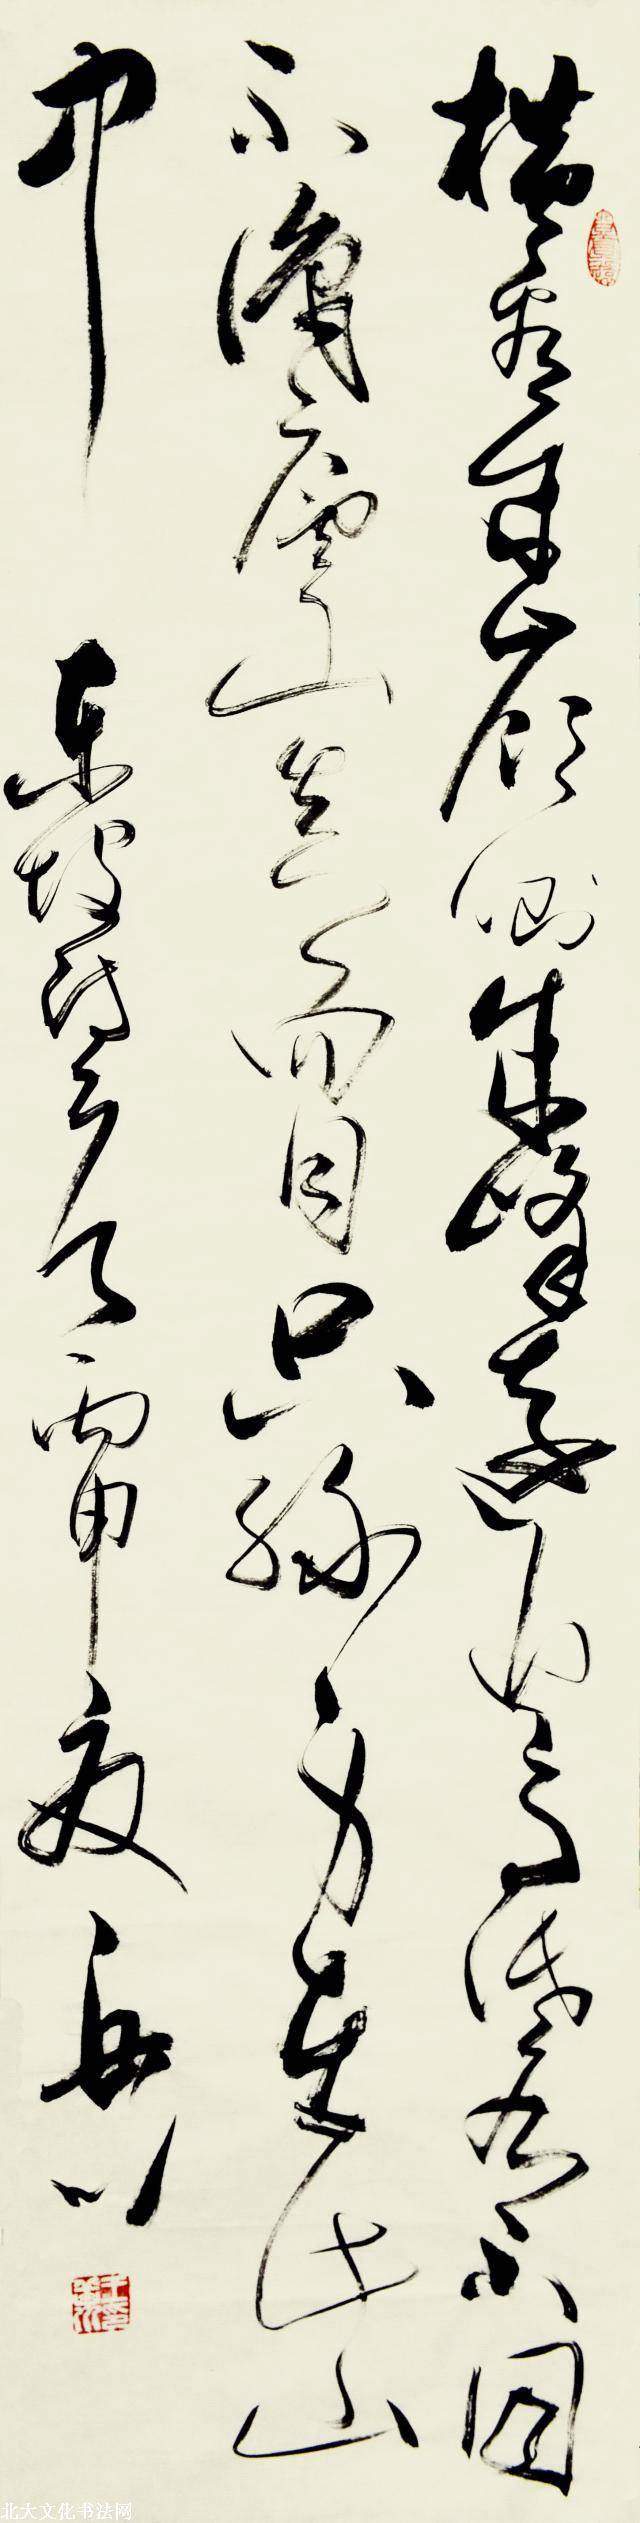 横看成嶺側成峰遠近高低各不同
不識廬山真面目只緣身在此山
中
東坡詩 丙申夏
北大文化书法网